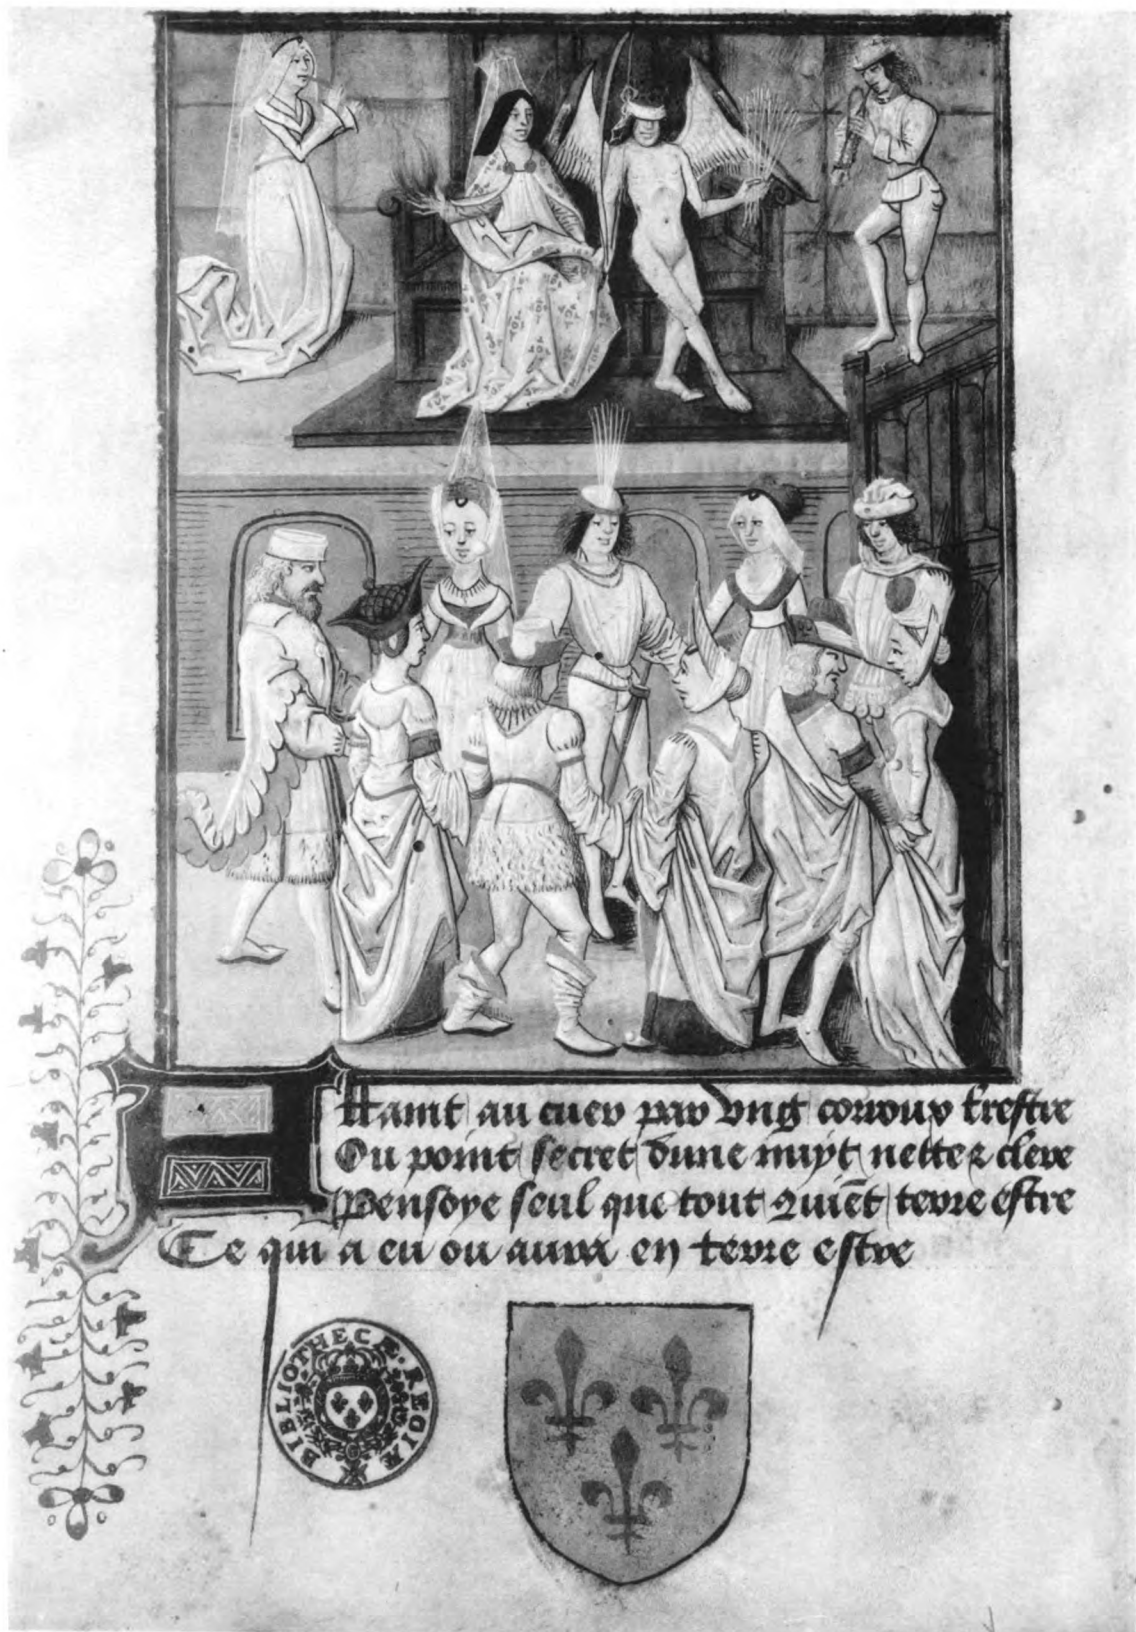 Attaint au cuer par ung corroux t'restre
Ou point secret dune nuyt nette ⁊ clere
Pensoye seul que tout ꝯuiēt terre estre
Ce qui a eu ou aura en terre estre
BIBLIOTHECÆ · REGIÆ